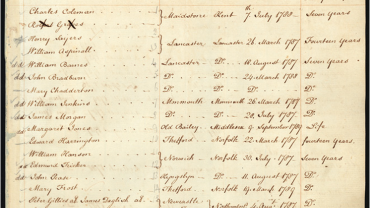 Charles Coleman Maidstone Kent 7. July 1788 Seven Years
Henry Sayers
William Aspinall Lancaster Lancaster 26 March 1787 Fourteen Years
dd William Barnes Lancaster Do. 10 August 1787 Seven Years
dd John Bradburn Do. Do. 24 March 1788 Do.
Mary Chadderton Do. Do. Do. Do. Do.
dd William Jenkins Monmouth Monmouth 26 March 1787 Do.
dd James Morgan Do. Do. 28 July 1787 Do.
dd Margaret Jones Old Bailey Middlesex 9 September Life
Edward Harrington Thetford Norfolk 22 March 1787 fourteen Years
William Hanson
dd Edward Norwich Norfolk 30 July 1787 Seven Years
dd John Case Do. 11 August 1787 Do.
Mary Frost Thetford Norfolk 1789 Do.
Peter Gillies als James als Newcastle